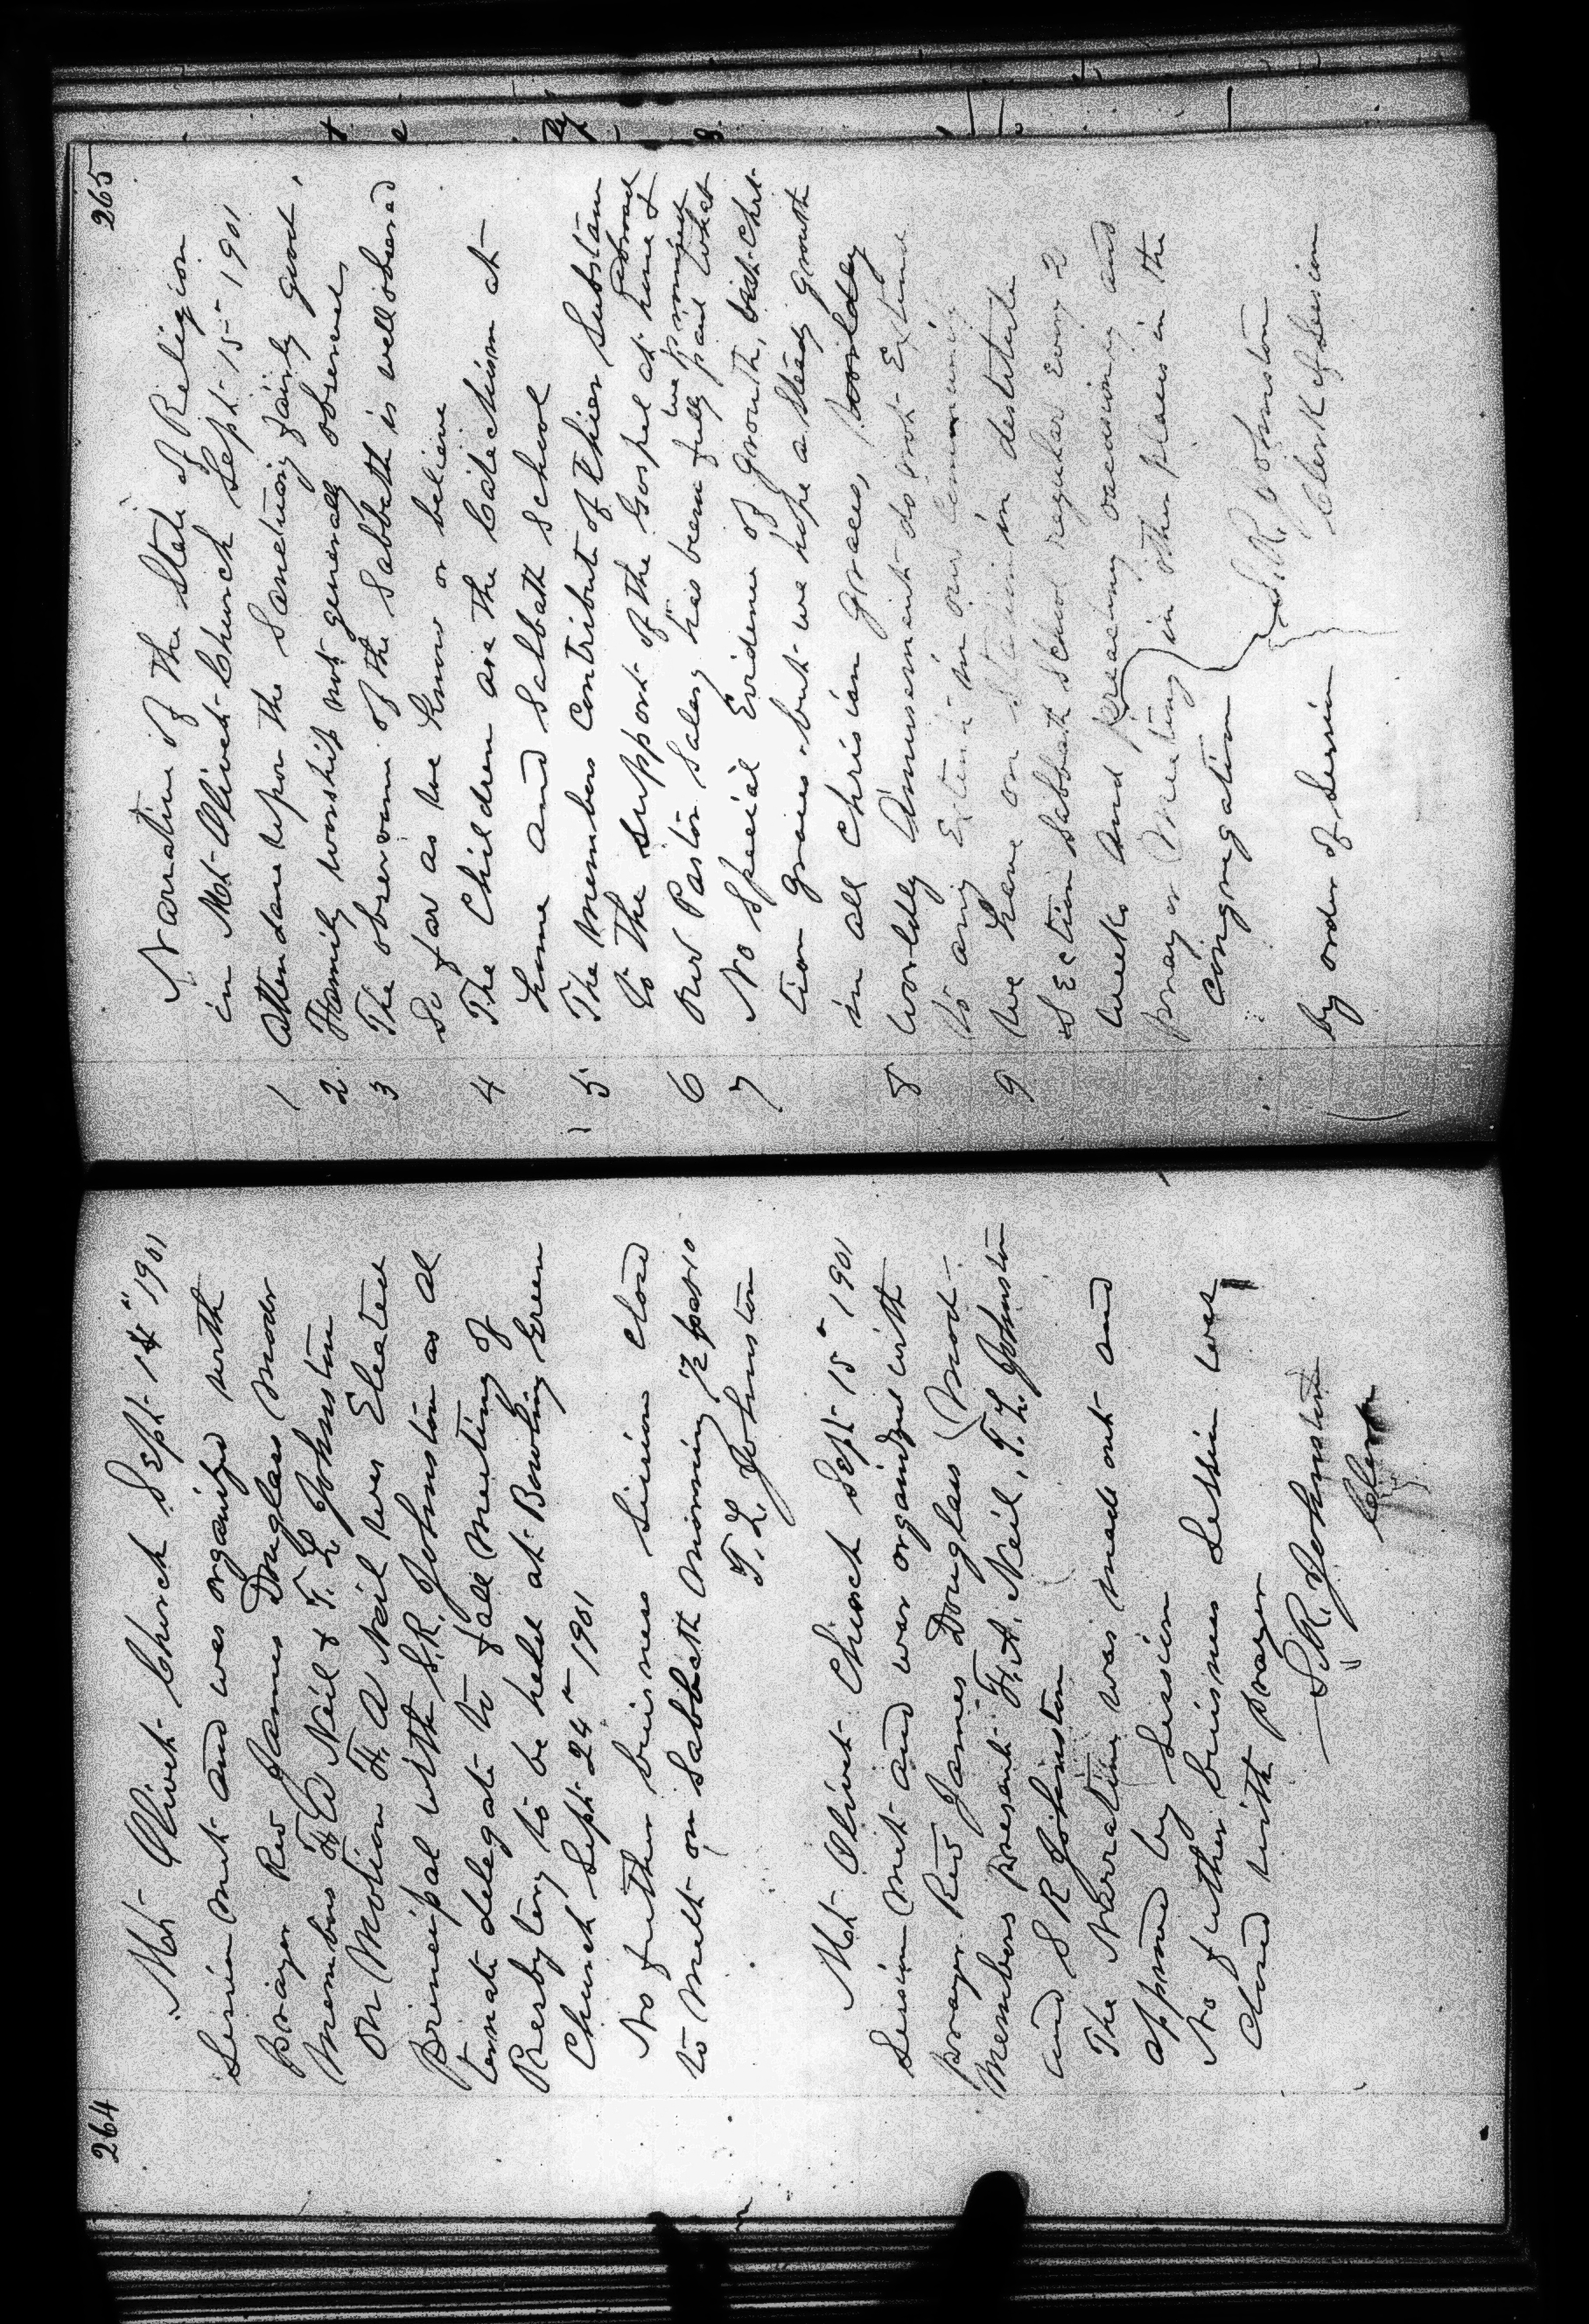 264
Mt Olivet Church Sept 14" 1901
Session met and was organized with
prayer Rev James Douglass Modr
Members F. A Neil & T. L Johnston
On Motion F. A Neil was Elected
Principal with S.R. Johnston as al
ternate delegate to fall meeting of
Presbytery to be held at Bowling Green
Church Sept 24" 1901
No further business Session closed
to meet on Sabbath morning ½ past 10
T. L. Johnston
Mt Olivet Church Sept 15" 1901
Session met and was organized with
prayer. Rev James Douglass Mod.
Members present F. A. Neil, T. L. Johnston
and S R Johnston
The Narrative was made out and
approved by Session
No further business Session was
Closed with prayer
S.R. Johnston
Clerk
265
Narrative of the State of Religion
in Mt Olivet Church Sept 15" 1901
1 Attendance upon the Sanctuary fairly good.
2 Family worship not generally observed
3 The observance of the Sabbath is well observed
so far as we know or believe
4 The Children are the Catechism at
home and Sabbath School
5 The members contribute of thier Substam
to the support of the Gospel at home & abroad
6 our Pastor Salary has been fully paid what
we promised
7 No Special Evidence of growth, Christ
tion graces. but we hope a steady growth
in all Chrisian graces, worldley
8 Worldly Amusement do not Extend
to any Extent in our Community
9 we have on Station in destitute
SEction Sabbath School regular Every 2
weeks and preaching occasionly and
prayer Meeting in other places in the
Congregation
S.R. Johnston
by order of Session Clerk of Session